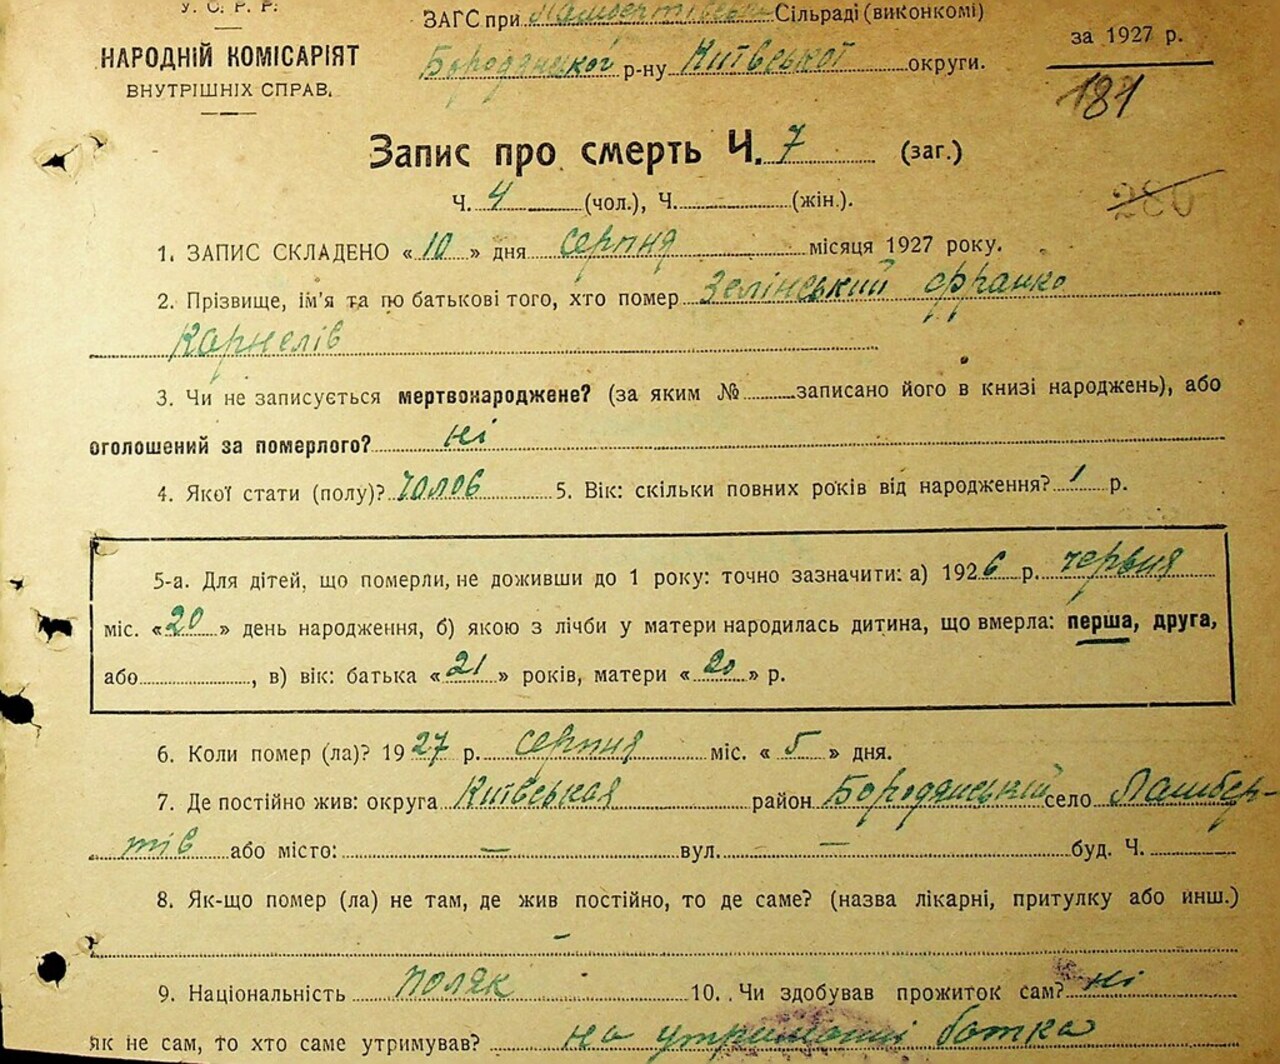 У. С. Р. Р.
НАРОДНІЙ КОМІСАРІЯТ
ВНУТРІШНІХ СПРАВ.
ЗАГС при Ламбертівськ Сільраді (виконкомі)
Бородянської р-ну Київської округи.
за 1927 р.
181
286
Запис про смерть Ч. 7 (заг.)
Ч. 4 (чол.), Ч. (жін.).
1. ЗАПИС СКЛАДЕНО « 10 » дня серпня місяця 1927 року.
2. Прізвище, ім'я та по батькові того, хто помер Зелінський Франко
Карнелів
3. Чи не записується мертвонароджене? (за яким № записано його в книзі народжень), або
оголошений за померлого? ні
4. Якої стати (полу)? чолов 5. Вік: скільки повних років від народження? 1 р.
5-а. Для дітей, що померли, не доживши до 1 року: точно зазначити: а) 1926 р. червня
міс. « 20 » день народження, б) якою з лічби у матери народилась дитина, що вмерла: перша, друга,
або , в) вік: батька « 21 » років, матери « 20 » р.
6. Коли помер (ла)? 1927 р. серпня міс. « 5 » дня.
7. Де постійно жив: округа Київськая район Бородянський село Ламбер-
тів або місто: — вул. — буд. Ч.
8. Як-що помер (ла) не там, де жив постійно, то де саме? (назва лікарні, притулку або инш.)
–
9. Національність поляк 10. Чи здобував прожиток сам? ні
Як не сам, то хто саме утримував? на утриманні батка